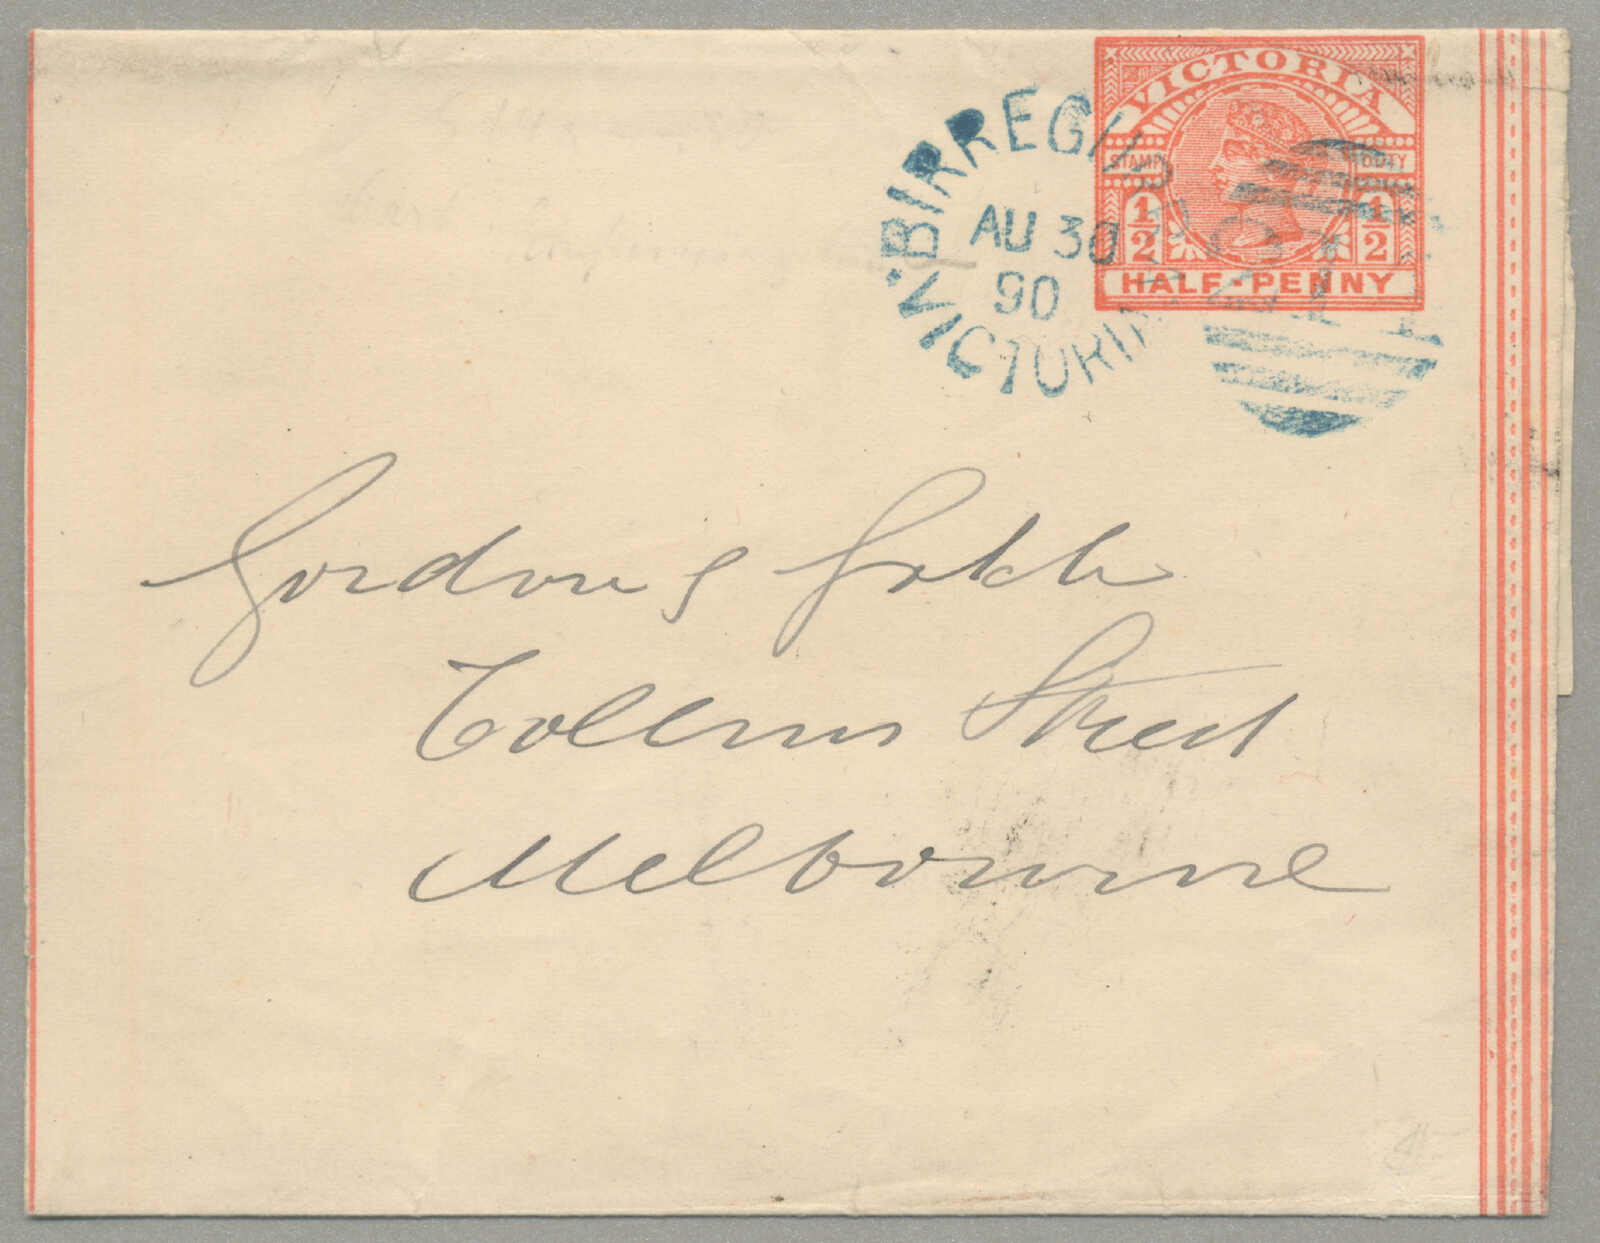 VICTORIA
STAMP DUTY
½ ½
HALF-PENNY
BIRREGURRA
AU 30
90
VICTORIA
Gordon & Gotch
Collins Street
Melbourne